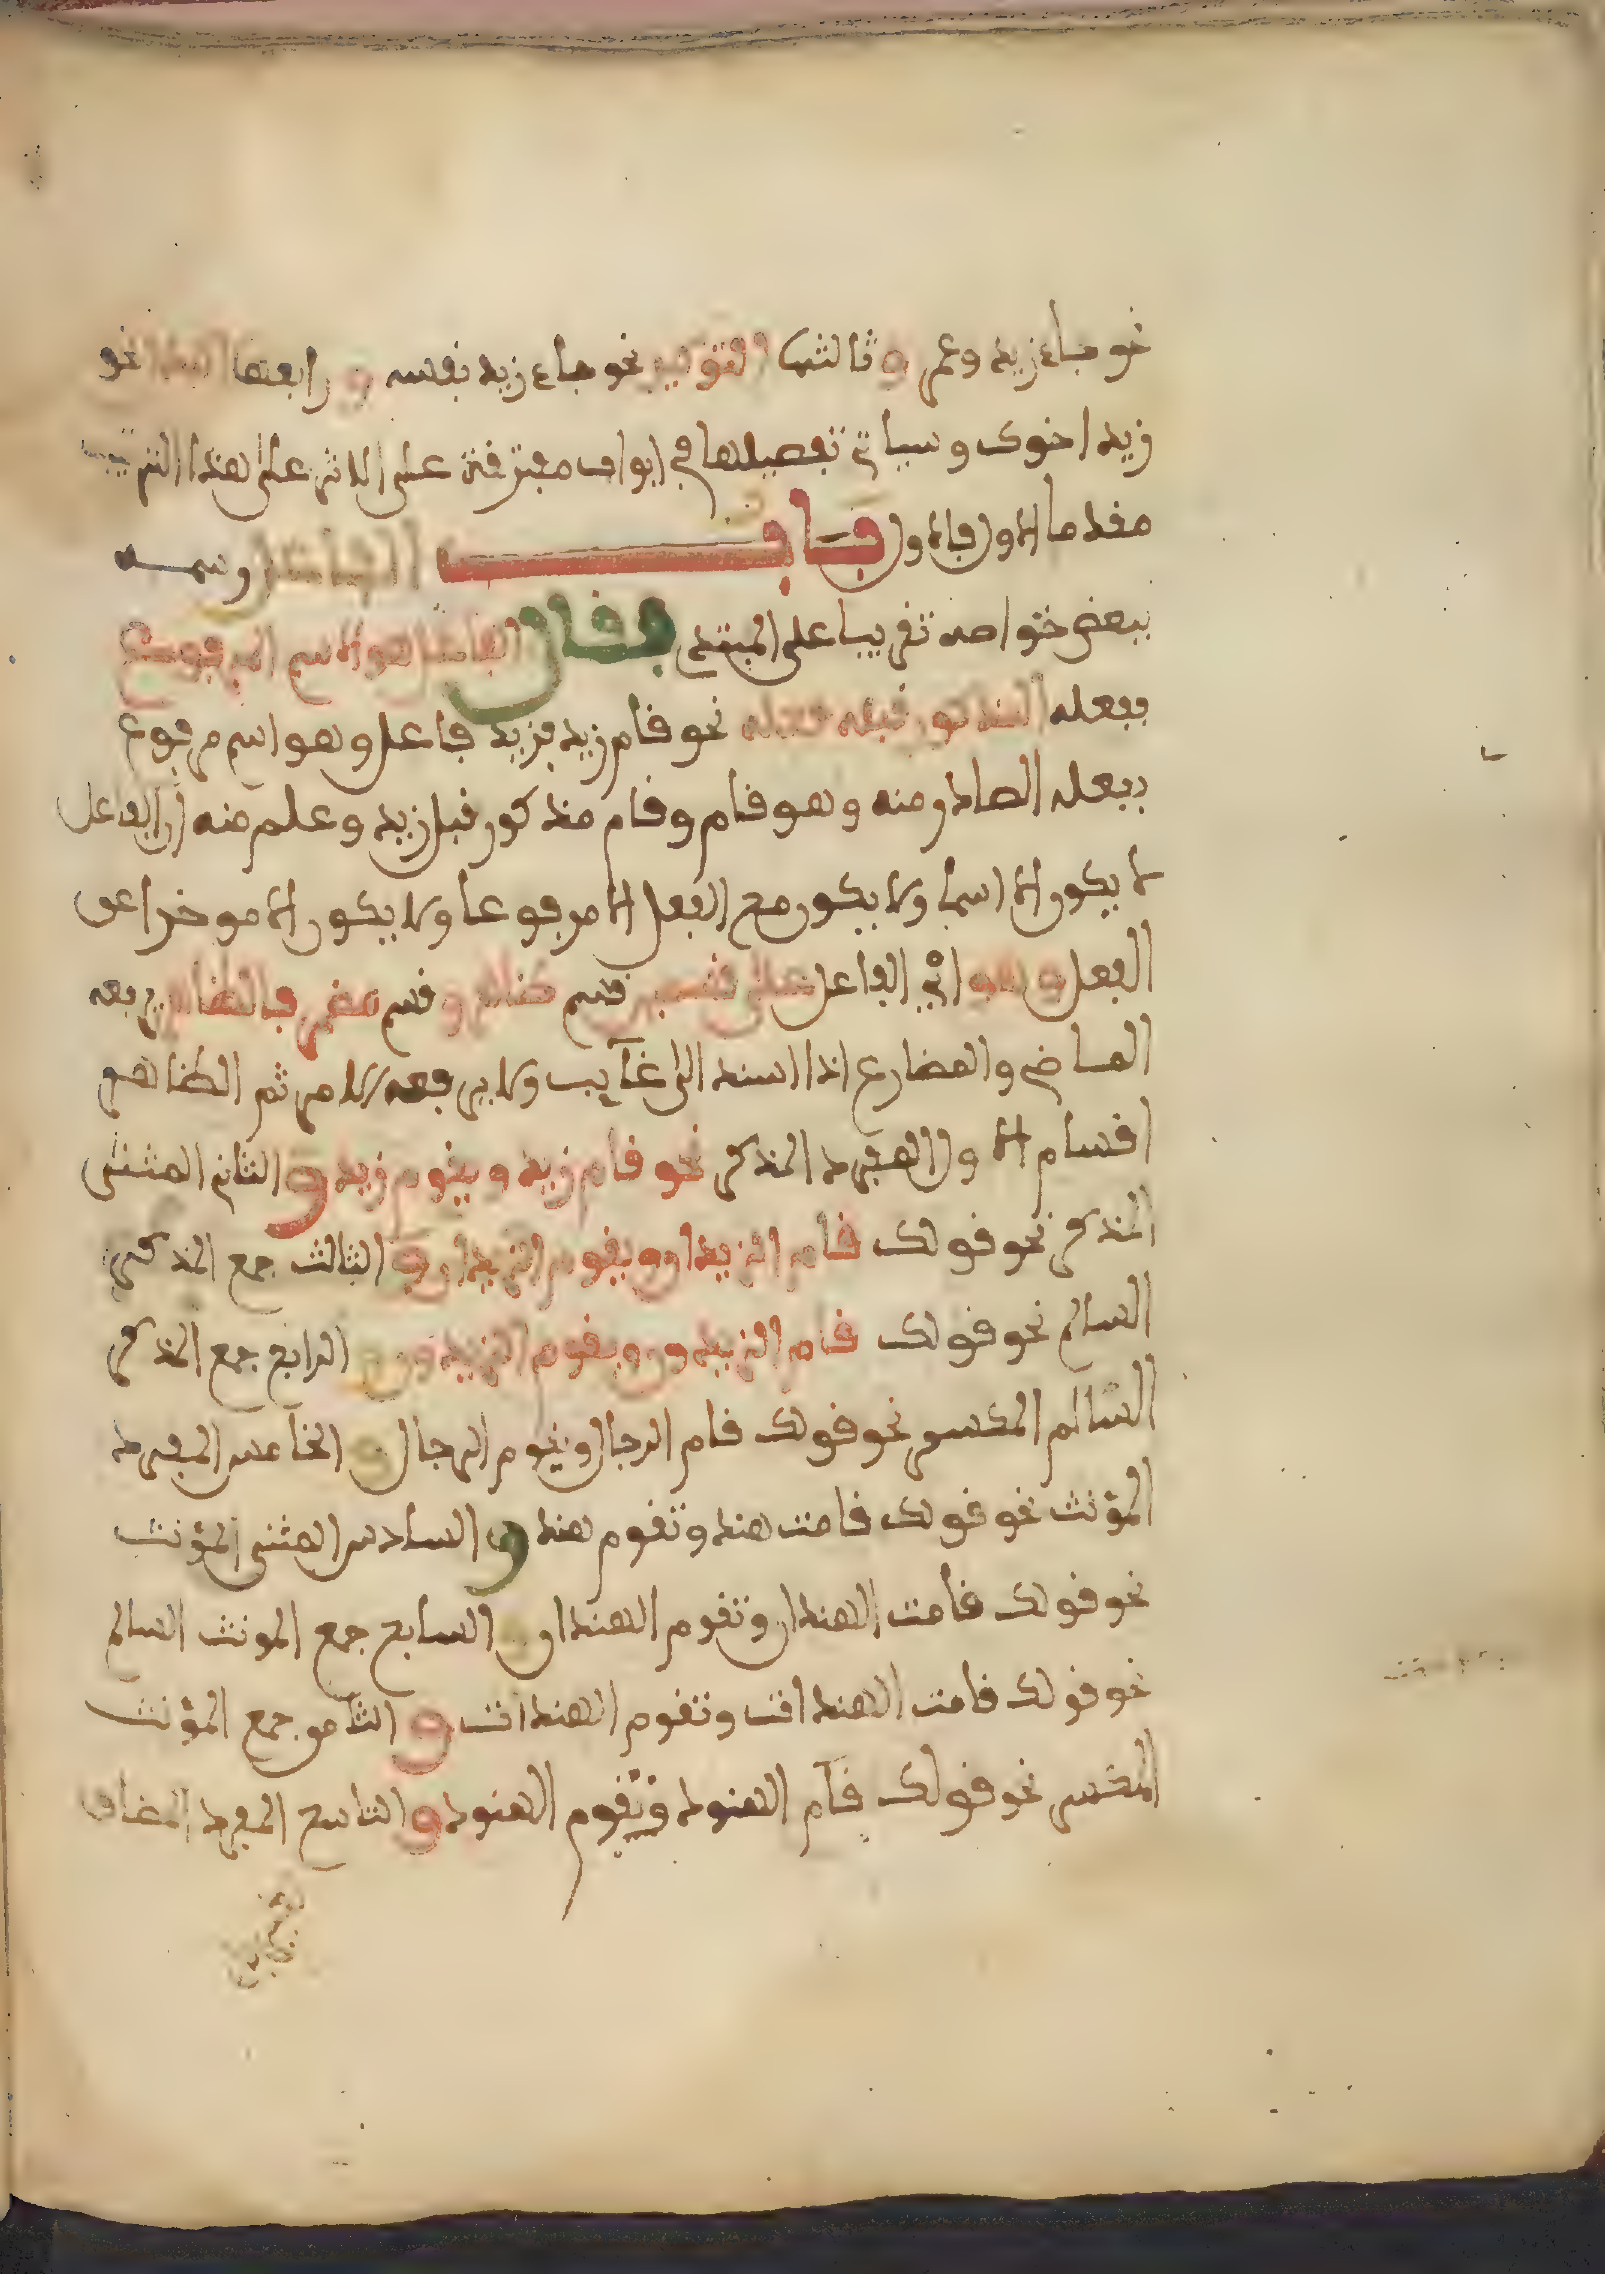 نحو جاء زيد وعمرو وثالثها التوكيد نحو جاء زيد نفسه ورابعها البدل نحو
زيد اخوك وسياتي تفصيلها في ابواب مفترقة على الاثر على هذا الترتيب
مقدما الاول فالاول باب الفاعل وسمه
ببعض خواصه تقريبا على المبتدي فقال الفاعل هو الاسم المرفوع
بفعله المذكور قبله فعله نحو قام زيد فزيد فاعل وهو اسم مرفوع
بفعله الصادر منه وهو قام وقام مذكور قبل زيد وعلم منه ان الفاعل
لا يكون الا اسما ولا يكون مع الفعل الا مرفوعا ولا يكون الا موخرا عن
الفعل وهو اي الفاعل على قسمين قسم ظاهر وقسم مضمر فالظاهر يرفعه
الماضي والمضارع اذا اسند الى غآيب ولا يرفعه الامر ثم الظاهر
اقسام الاول المفرد المذكر نحو قام زيد ويقوم زيد والثاني المثنى
المذكر نحو قولك قام الزيدان ويقوم الزيدان والثالث جمع المذكر
السالم نحو قولك قام الزيدون ويقوم الزيدون و الرابع جمع المذكر
السالم المكسر نحو قولك قام الرجال ويقوم الرجال و الخامس المفرد
المؤنث نحو قولك قامت هند وتقوم هند و السادس المثنى المؤنث
نحو قولك قامت الهندان وتقوم الهندان و السابع جمع المونث السالم
نحو قولك قامت الهندات وتقوم الهندات و الثامن جمع المؤنث
المكسر نحو قولك قام الهنود وتقوم الهنود والتاسع المفرد المضاف